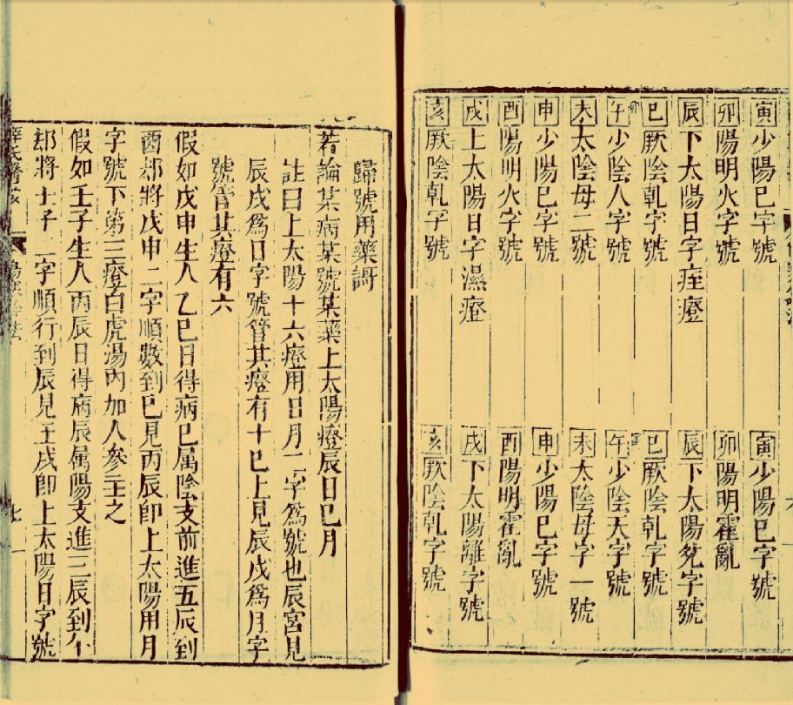 寅少陽巳字號
寅少陽巳字號
卯陽明火字號
卯陽明霍亂
辰下太陽日字痓證
辰下太陽兌字號
巳厥陰乹字號
巳厥陰乹字號
午少陰人字號
午少陰天字號
未太陰母二號
未太陰母字一號
申少陽巳字號
申少陽巳字號
酉陽明火字號
酉陽明霍亂
戌上太陽日字濕證
戌下太陽離字號
亥厥陰乹字號
亥厥陰乹字號
歸號用藥訶
若論某病某號某藥上太陽證辰日巳月
註曰上太陽十六證用日月二字爲號也辰宮見
辰戌爲日字號管其證有十巳上見辰戌爲月字
號管其證有六
假如戊申生人乙巳日得病巳属陰支前進五辰到
酉却將戊申二字順數到巳見丙辰卽上太陽用月
字號下第三證白虎湯內加人參主之
假如壬子生人丙辰日得病辰属陽支進三辰到午
却將壬子二字順行到辰見壬戌卽上太陽日字號